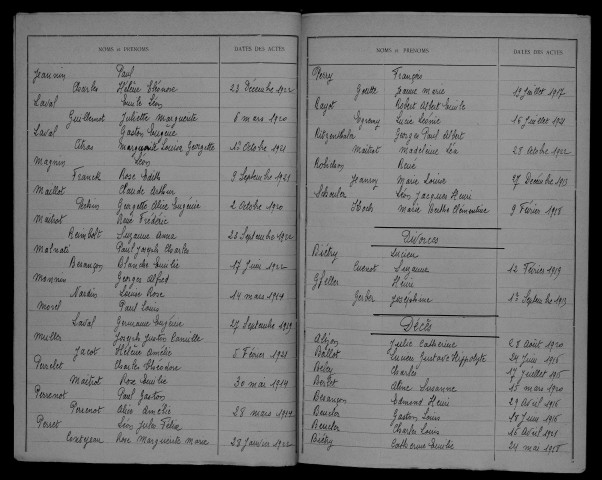 NOMS et PRÉNOMS DATES DES ACTES
Jeannin Paul
Charles Hélène Eléonore 23 Décembre 1922
Laval Emile Léon
Guillemot Juliette Marguerite 6 mars 1920
Laval Gaston Eugène
Marguerite Louise Georgette 1er Octobre 1921
Magnin Léon
Franck Rose Edith 9 Septembre 1921
Maillot Claude Arthur
Georgette Alice Eugénie 2 Octobre 1920
Maitrot René Frédéric
Reimbolt Suzanne Anna 23 Septembre 1922
Malnati Paul Joseph Charles
Besançon Blanche Emilie 17 Juin 1922
Monnin Georges Alfred
Nardin Louise Rose 14 mars 1919
Morel Paul Louis
Laval Germaine Eugénie 27 Septembre 1919
Muller Joseph Justin Camille
Jacot Hélène Amélie 5 Février 1921
Perrelet Charles Théodore
Maitrot Rose Emilie 30 mai 1914
Perrenot Paul Gaston
Perrenot Alice Amélie 28 mars 1919
Perret Léon Jules Félix
Rose Marguerite Marie 28 Janvier 1922
NOMS et PRÉNOMS DATES DES ACTES
Perry François
Goutte Jeanne Marie 19 Juillet 1917
Rayot Robert Albert Emile
Lucie Léonie 16 Juillet 1921
Ritzenthaler Georges Paul Albert
Maitrot Madeleine Léa 28 Octobre 1922
Robichon René
Jeanroy Marie Louise 27 Décembre 1913
Schouler Léon Jacques Henri
Hoch Marie Berthe Clémentine 9 Février 1918
Divorces
Biétry Lucien
Cuenot Suzanne 12 Février 1919
Gfeller Henri
Gerber Joséphine 13 Septembre 1913
Décès
Julie Catherine 28 Août 1920
Ballot Lucien Gustave Hippolyte 24 Juin 1916
Charles 17 Juillet 1915
Berlet Aline Suzanne 15 mars 1920
Besançon Edmond Henri 29 Avril 1916
Beucler Gaston Louis 18 Juin 1916
Beucler Charles Louis 16 Avril 1921
Biétry Catherine Emilie 24 mai 1918